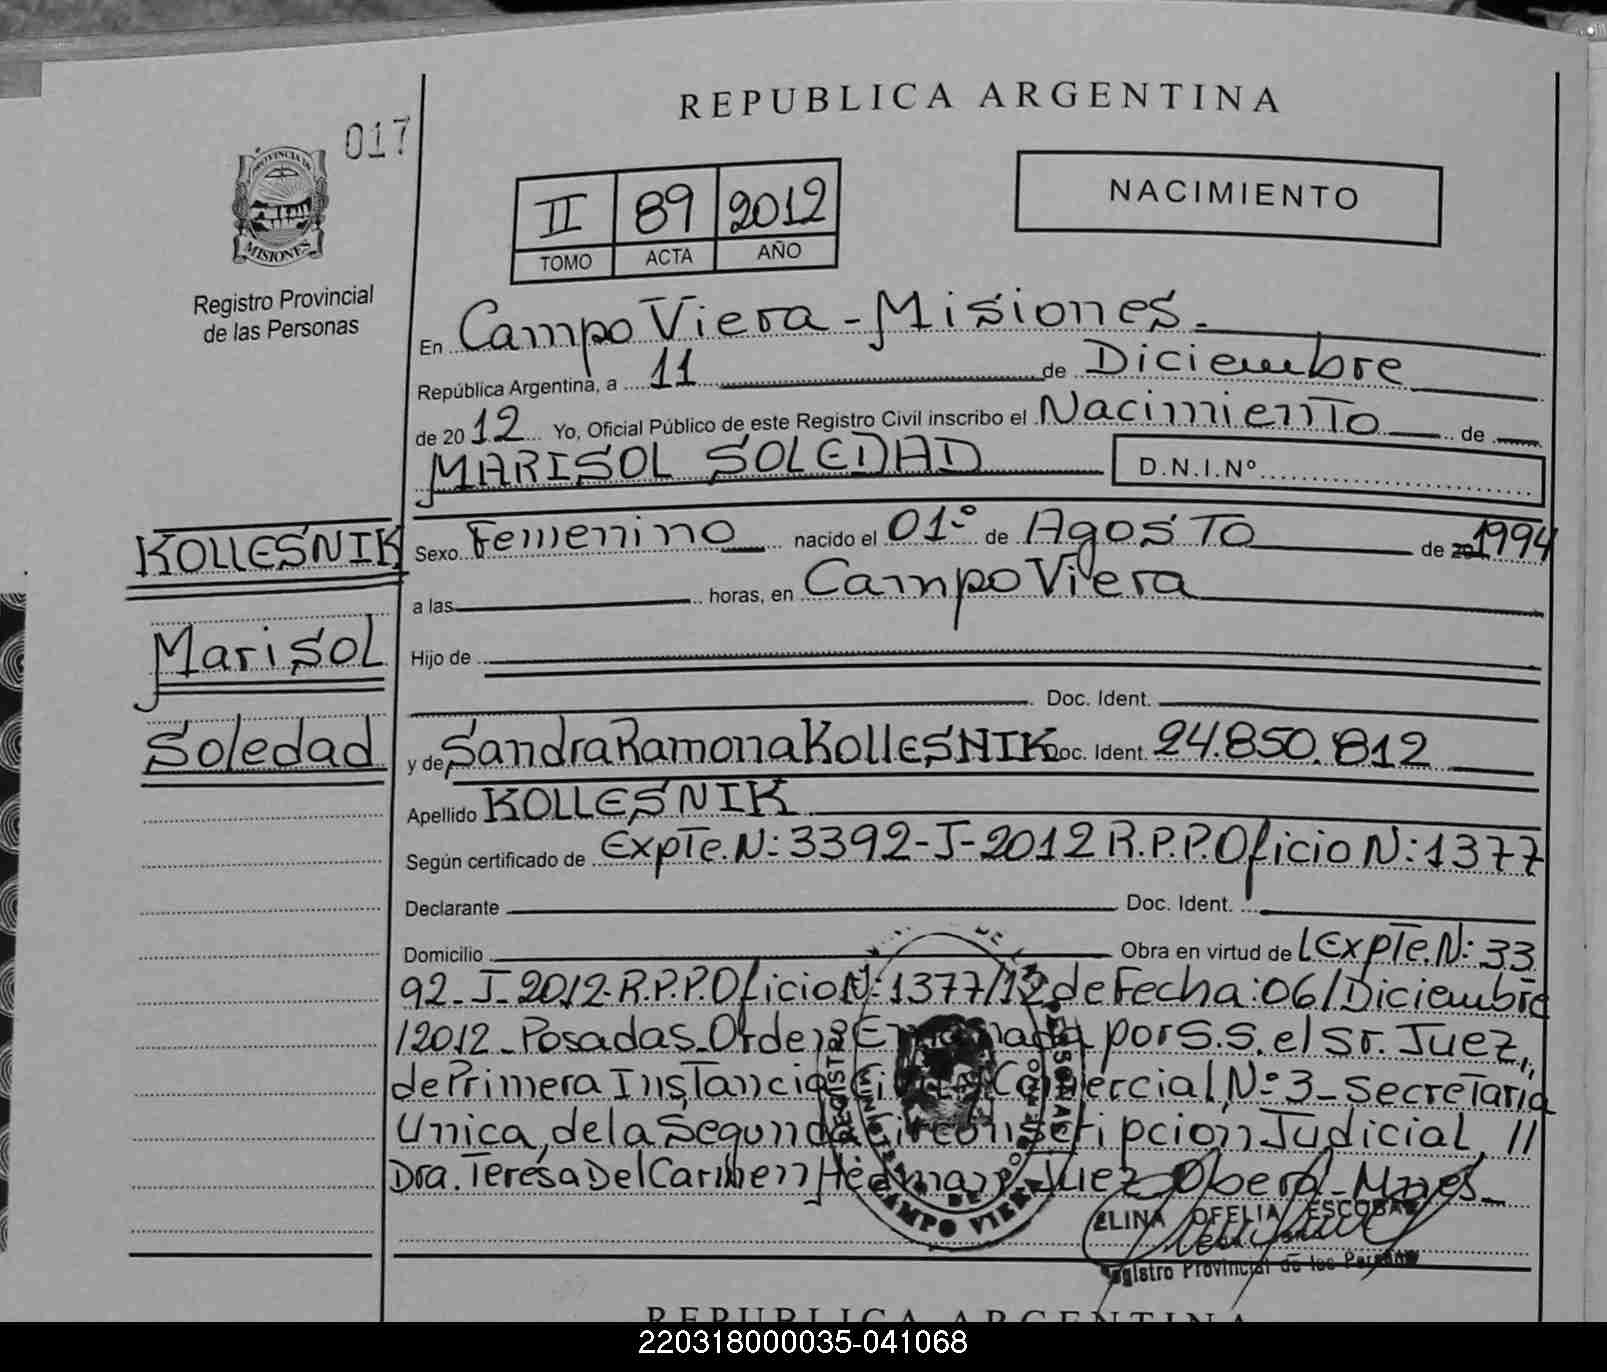 REPUBLICA ARGENTINA
017
PROVINCIA DE
MISIONES
Registro Provincial
de las Personas
II 89 2012
TOMO ACTA AÑO
NACIMIENTO
En Campo Viera - Misiones.
República Argentina, a 11 de Diciembre
de 2012 Yo, Oficial Público de este Registro Civil inscribo el Nacimiento de
MARISOL SOLEDAD D.N.I.Nº
KOLLESNIK
Marisol
Soledad
Sexo Femenino nacido el 01º de Agosto de 20 1994
a las horas, en Campo Viera
Hijo de
Doc. Ident.
y de Sandra Ramona KollesNIK Doc. Ident. 24.850.812
Apellido KOLLESNIK
Según certificado de Expte. N: 3392-J-2012 R.P.P. Oficio N: 1377
Declarante Doc. Ident.
Domicilio Obra en virtud de Expte. N: 33
92-J-2012-R.P.P. Oficio N: 1377/12 de Fecha: 06/Diciembre
/2012-Posadas-Orden por S.S. el Sr. Juez,
de Primera Instancia Civil Comercial, Nº 3-Secretaria
Unica, de la Segunda Circunscripcion Judicial, //
Dra. Teresa Del Carmen Juez Oberá-Mnes-
CAMPO VIERA
ELINA OFELIA ESCOBAR
Registro Provincial de las Personas
REPUBLICA ARGENTINA
220318000035-041068